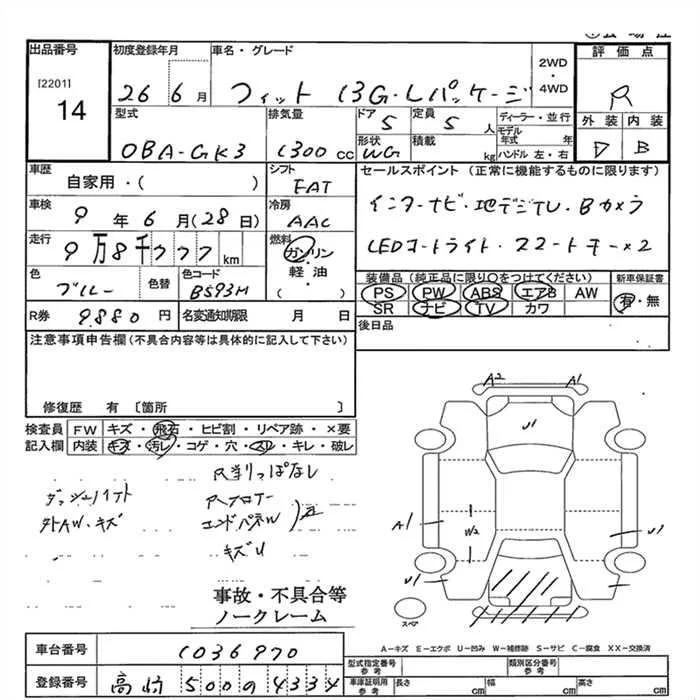 出品番号 初度登録年月 車名・グレード 2WD・4WD 評価点
[2201] 14 26 6月 フィット 13G・Lパッケージ R
型式 排気量 ドア 定員 ディーラー・並行 外装 内装
DBA-GK3 1300cc 5 5人 モデル年式 年 D B
形状 WG 積載 kg ハンドル 左・右
車歴 自家用・( ) シフト FAT セールスポイント(正常に機能するものに限ります)
車検 9年6月(28日) 冷房 AAC インターナビ・地デジTV・Bカメラ
走行 9万8千777km 燃料 ガソリン・軽油・( ) LEDオートライト・スマートキー×2
色 ブルー 色替 色コード B593M
装備品(純正品に限り○をつけてください) 新車保証書
PS PW ABS エアB AW 有・無
SR ナビ TV カワ
R券 9880円 名変通知期限 月 日 後日品
注意事項申告欄(不具合内容等は具体的に記入して下さい)
修復歴 有 〔箇所 〕
検査員 FW キズ・飛石・ヒビ割・リペア跡・×要
記入欄 内装 キズ・汚レ・コゲ・穴・スレ・キレ・破レ
R当りっぱなし
外AW・キズ
エンドパネW
キズU
事故・不具合等
ノークレーム
A2 A1
U1
A1 W2 U1
U1
スペア
A-キズ E-エクボ U-凹み W-補修跡 S-サビ C-腐食 XX-交換済
車台番号 1036970
型式指定番号 参考 類別区分番号 参考
登録番号 高崎 500 の 4334
車庫証明用 参考 長さ cm 幅 cm 高さ cm